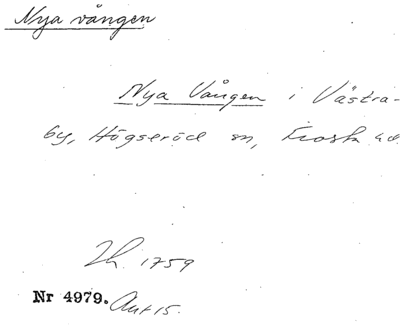 Nya vången
Nya Vången i Västra-
by, Högseröd sn, Frosta hd.
Lh. 1759
Nr 4979. Avt 15.